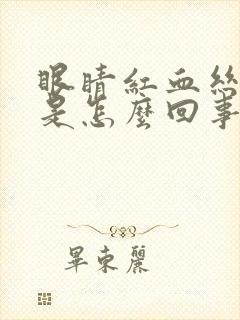 眼睛紅血絲
是怎麼回事
畢東麗